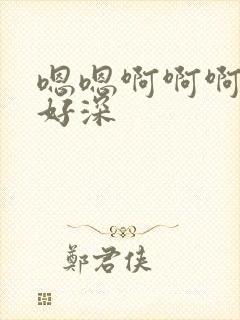 嗯嗯啊啊啊
好深
鄭君俠